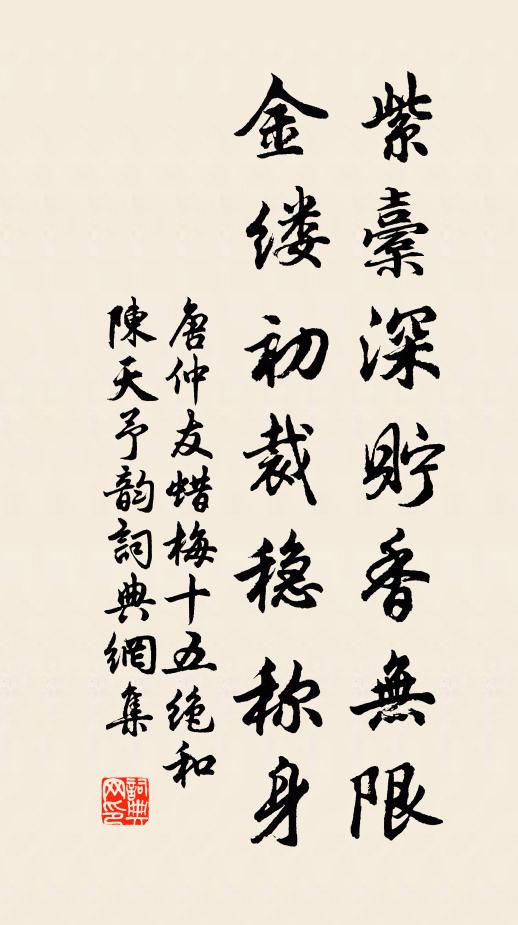 紫深貯香無限
金缕初裁稳称身
唐仲友蜡梅十五绝和
陳天予韵詞典網集
詞典网印